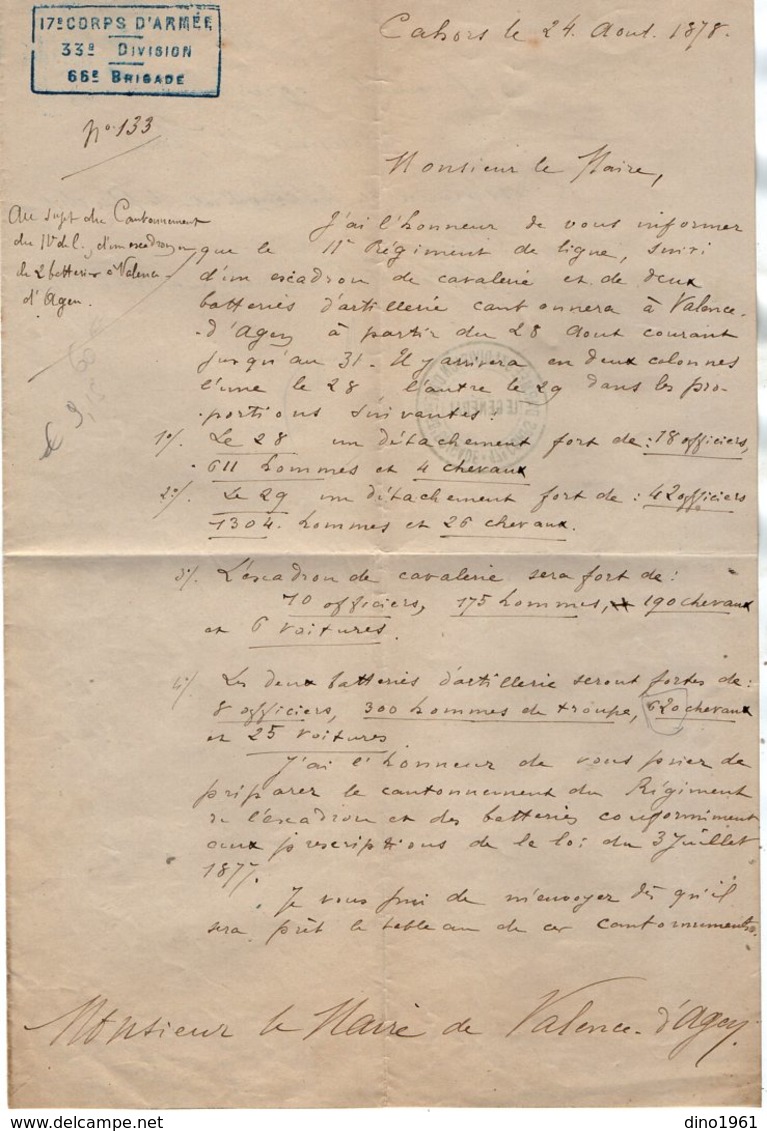 17e CORPS D'ARMÉE
33e DIVISION
66e BRIGADE
Cahors le 24 Aout 1878.
No 133
Monsieur le Maire,
Au sujet du Cantonnement
du d'un escadron
de 2 batteries à Valence-
d'Agen.
J'ai l'honneur de vous informer
que le 11e Régiment de ligne, suivi
d'un escadron de cavalerie et de deux
batteries d'artillerie cantonnera à Valence-
-d'Agen à partir du 28 aout courant
jusqu'au 31. Il y arrivera en deux colonnes
l'une le 28 l'autre le 29 dans les pro-
-portions suivantes :
1o/. Le 28 un détachement fort de : 18 officiers,
611 hommes et 4 chevaux
2o/. Le 29 un détachement fort de : 42 officiers
1304 hommes et 26 chevaux.
3o/. L'escadron de cavalerie sera fort de :
10 officiers, 175 hommes, 190 chevaux
et 6 voitures.
4o/. Les deux batteries d'artillerie seront fortes de :
8 officiers, 300 hommes de troupe, 620 chevaux
et 25 voitures
J'ai l'honneur de vous prier de
préparer le cantonnement du Régiment
de l'escadron et des batteries conformément
aux prescriptions de la loi du 3 Juillet
1877.
Je vous prie de m'envoyer dès qu'il
sera prêt le tableau de ce cantonnement.
Monsieur le Maire de Valence-d'Agen.
dino1961